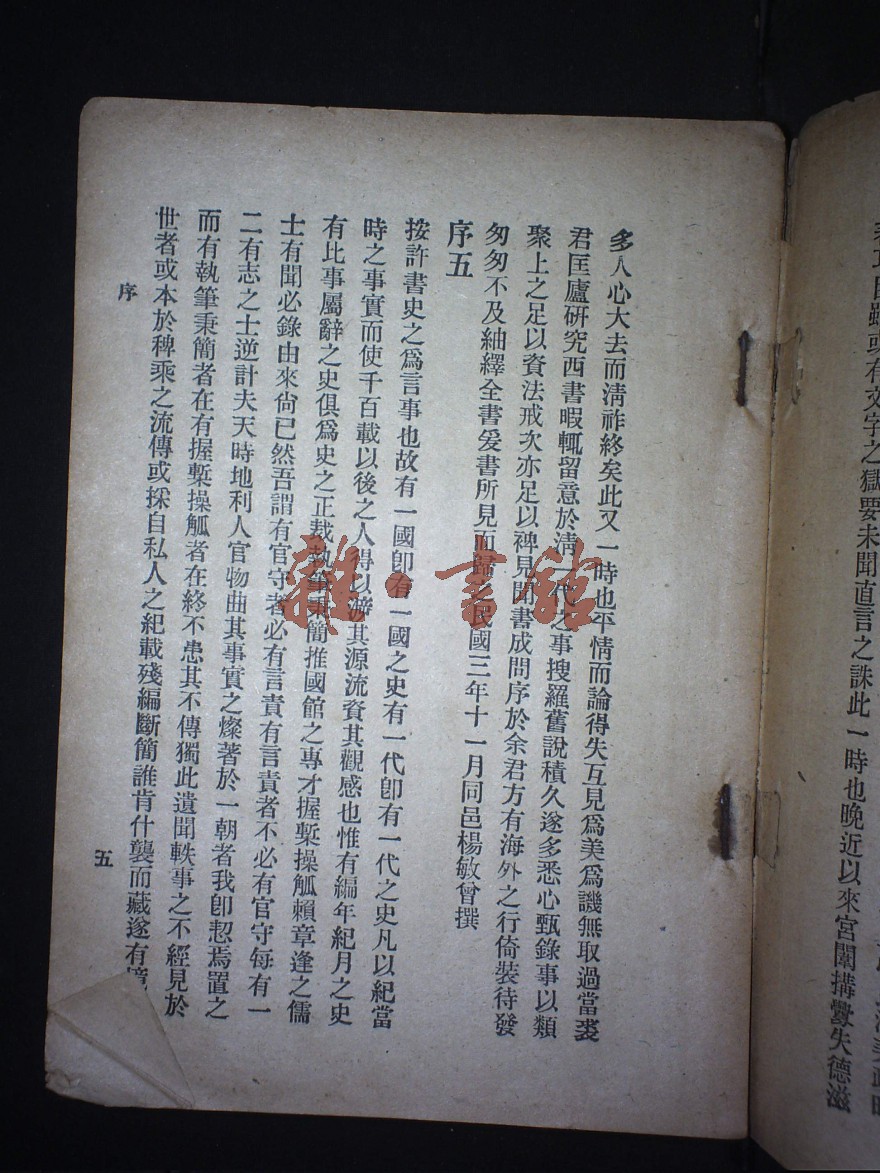 未聞直言之誅此一時也晚近以來宮闈搆釁失德滋
多人心大去而淸祚終矣此又一時也平情而論得失互見爲美爲譏無取過當裘
君匡廬硏究西書暇輒留意於淸一代之事搜羅舊說積久遂多悉心甄錄事以類
聚上之足以資法戒次亦足以裨見聞書成問序於余君方有海外之行倚裝待發
匆匆不及紬繹全書爰書所見而歸之民國三年十一月同邑楊敏曾撰
序五
按許書史之爲言事也故有一國卽有一國之史有一代卽有一代之史凡以紀當
時之事實而使千百載以後之人得以溯其源流資其觀感也惟有編年紀月之史
有比事屬辭之史俱爲史之正裁執筆秉簡推國館之專才握槧操觚賴章逢之儒
士有聞必錄由來尙已然吾謂有官守者必有言責有言責者不必有官守每有一
二有志之士逆計夫天時地利人官物曲其事實之燦著於一朝者我卽恝焉置之
而有執筆秉簡者在有握槧操觚者在終不患其不傳獨此遺聞軼事之不經見於
世者或本於稗乘之流傳或採自私人之紀載殘編斷簡誰肯什襲而藏遂有
序
五
雜·書館